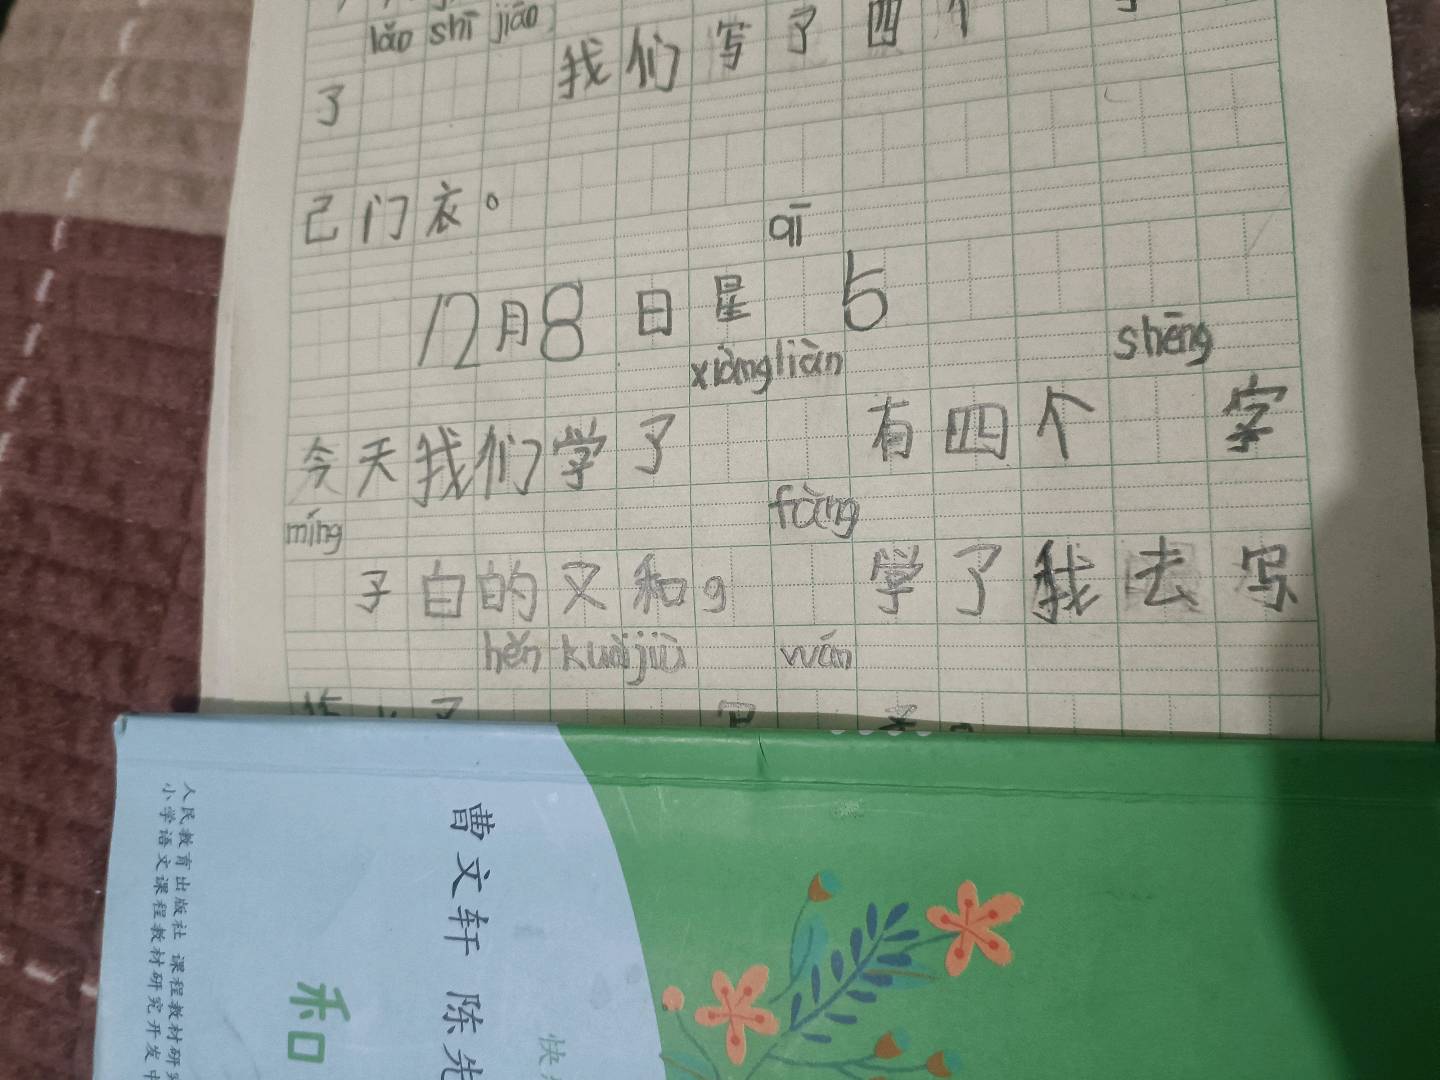 lǎo shī jiāo
我们写了四个
了
己门衣。
qī
12月8日星 5
xiàng liàn
shēng
今天我们学了 有四个 字
míng
fàng
子白的文和。 学了我去写
hěn kuài jiù wán
写
曹文轩 陈先
人民教育出版社 课程教材研究
小学语文课程教材研究开发中
和
快